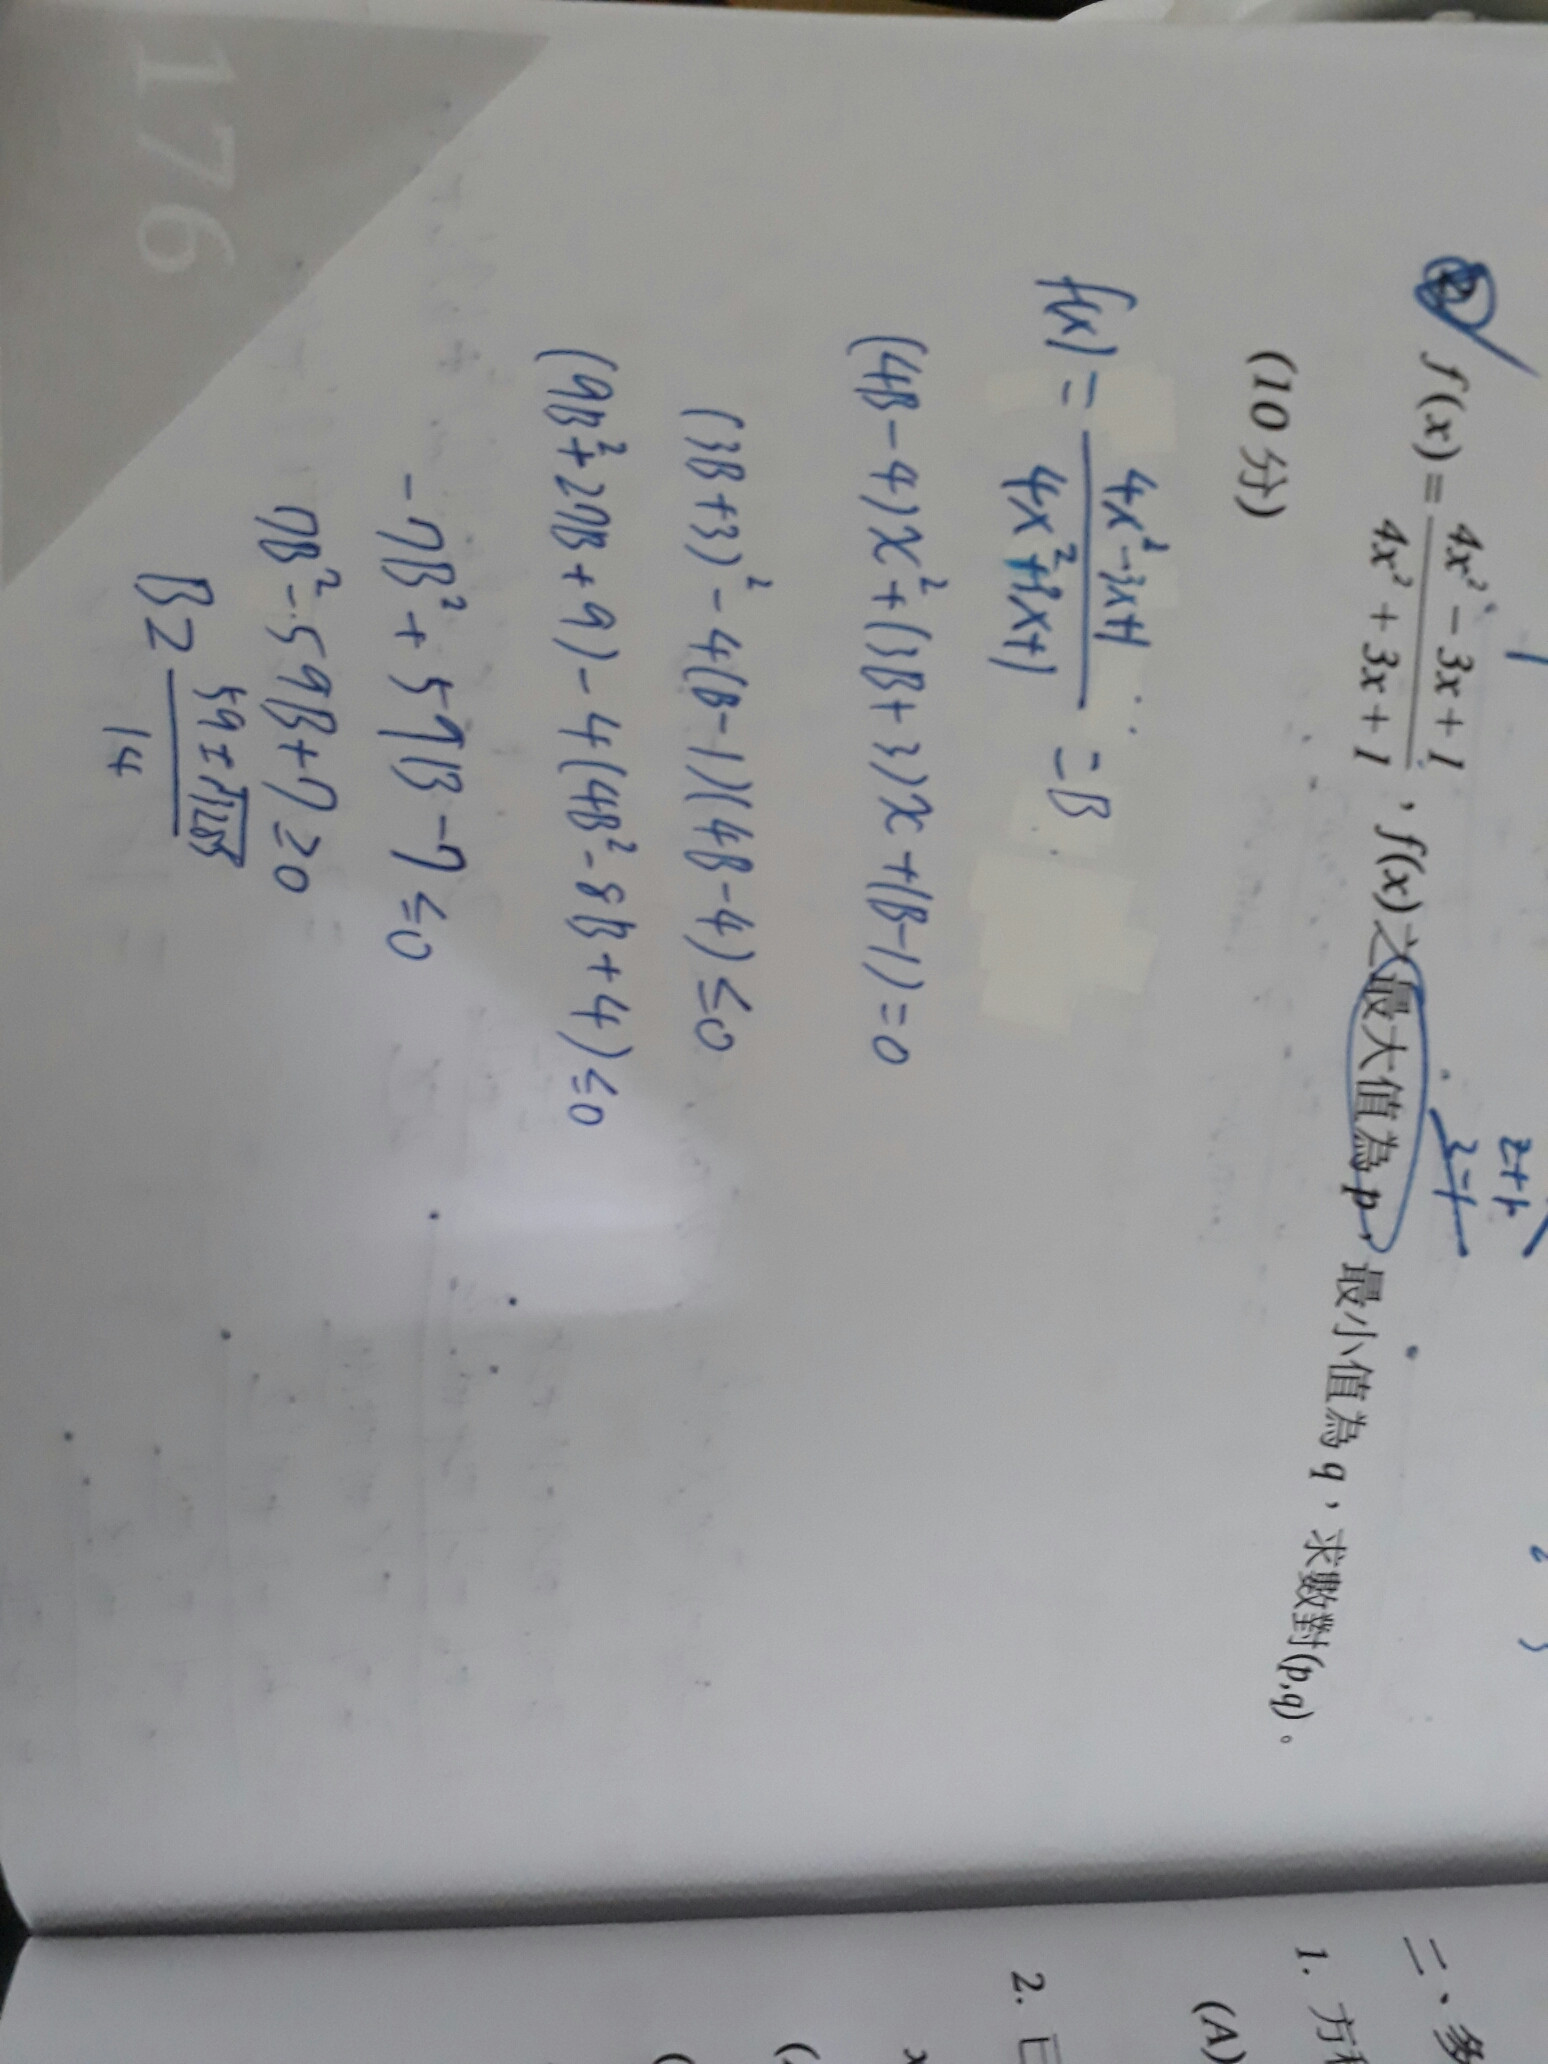 f(x) = \frac{4x² - 3x + 1}{4x² + 3x + 1}，f(x)之最大值為p，最小值為q，求數對(p,q)。
(10分)
f(x) = \frac{4x² - 3x + 1}{4x² + 3x + 1} = B
(4B - 4)x² + (3B + 3)x + (B - 1) = 0
(3B + 3)² - 4(B - 1)(4B - 4) ≤ 0
(9B² + 27B + 9) - 4(4B² - 8B + 4) ≤ 0
-7B² + 59B - 7 ≤ 0
7B² - 59B + 7 ≥ 0
B ≥ \frac{59 ±
14
176
二、多
1. 方程
(A)
2. 已
x